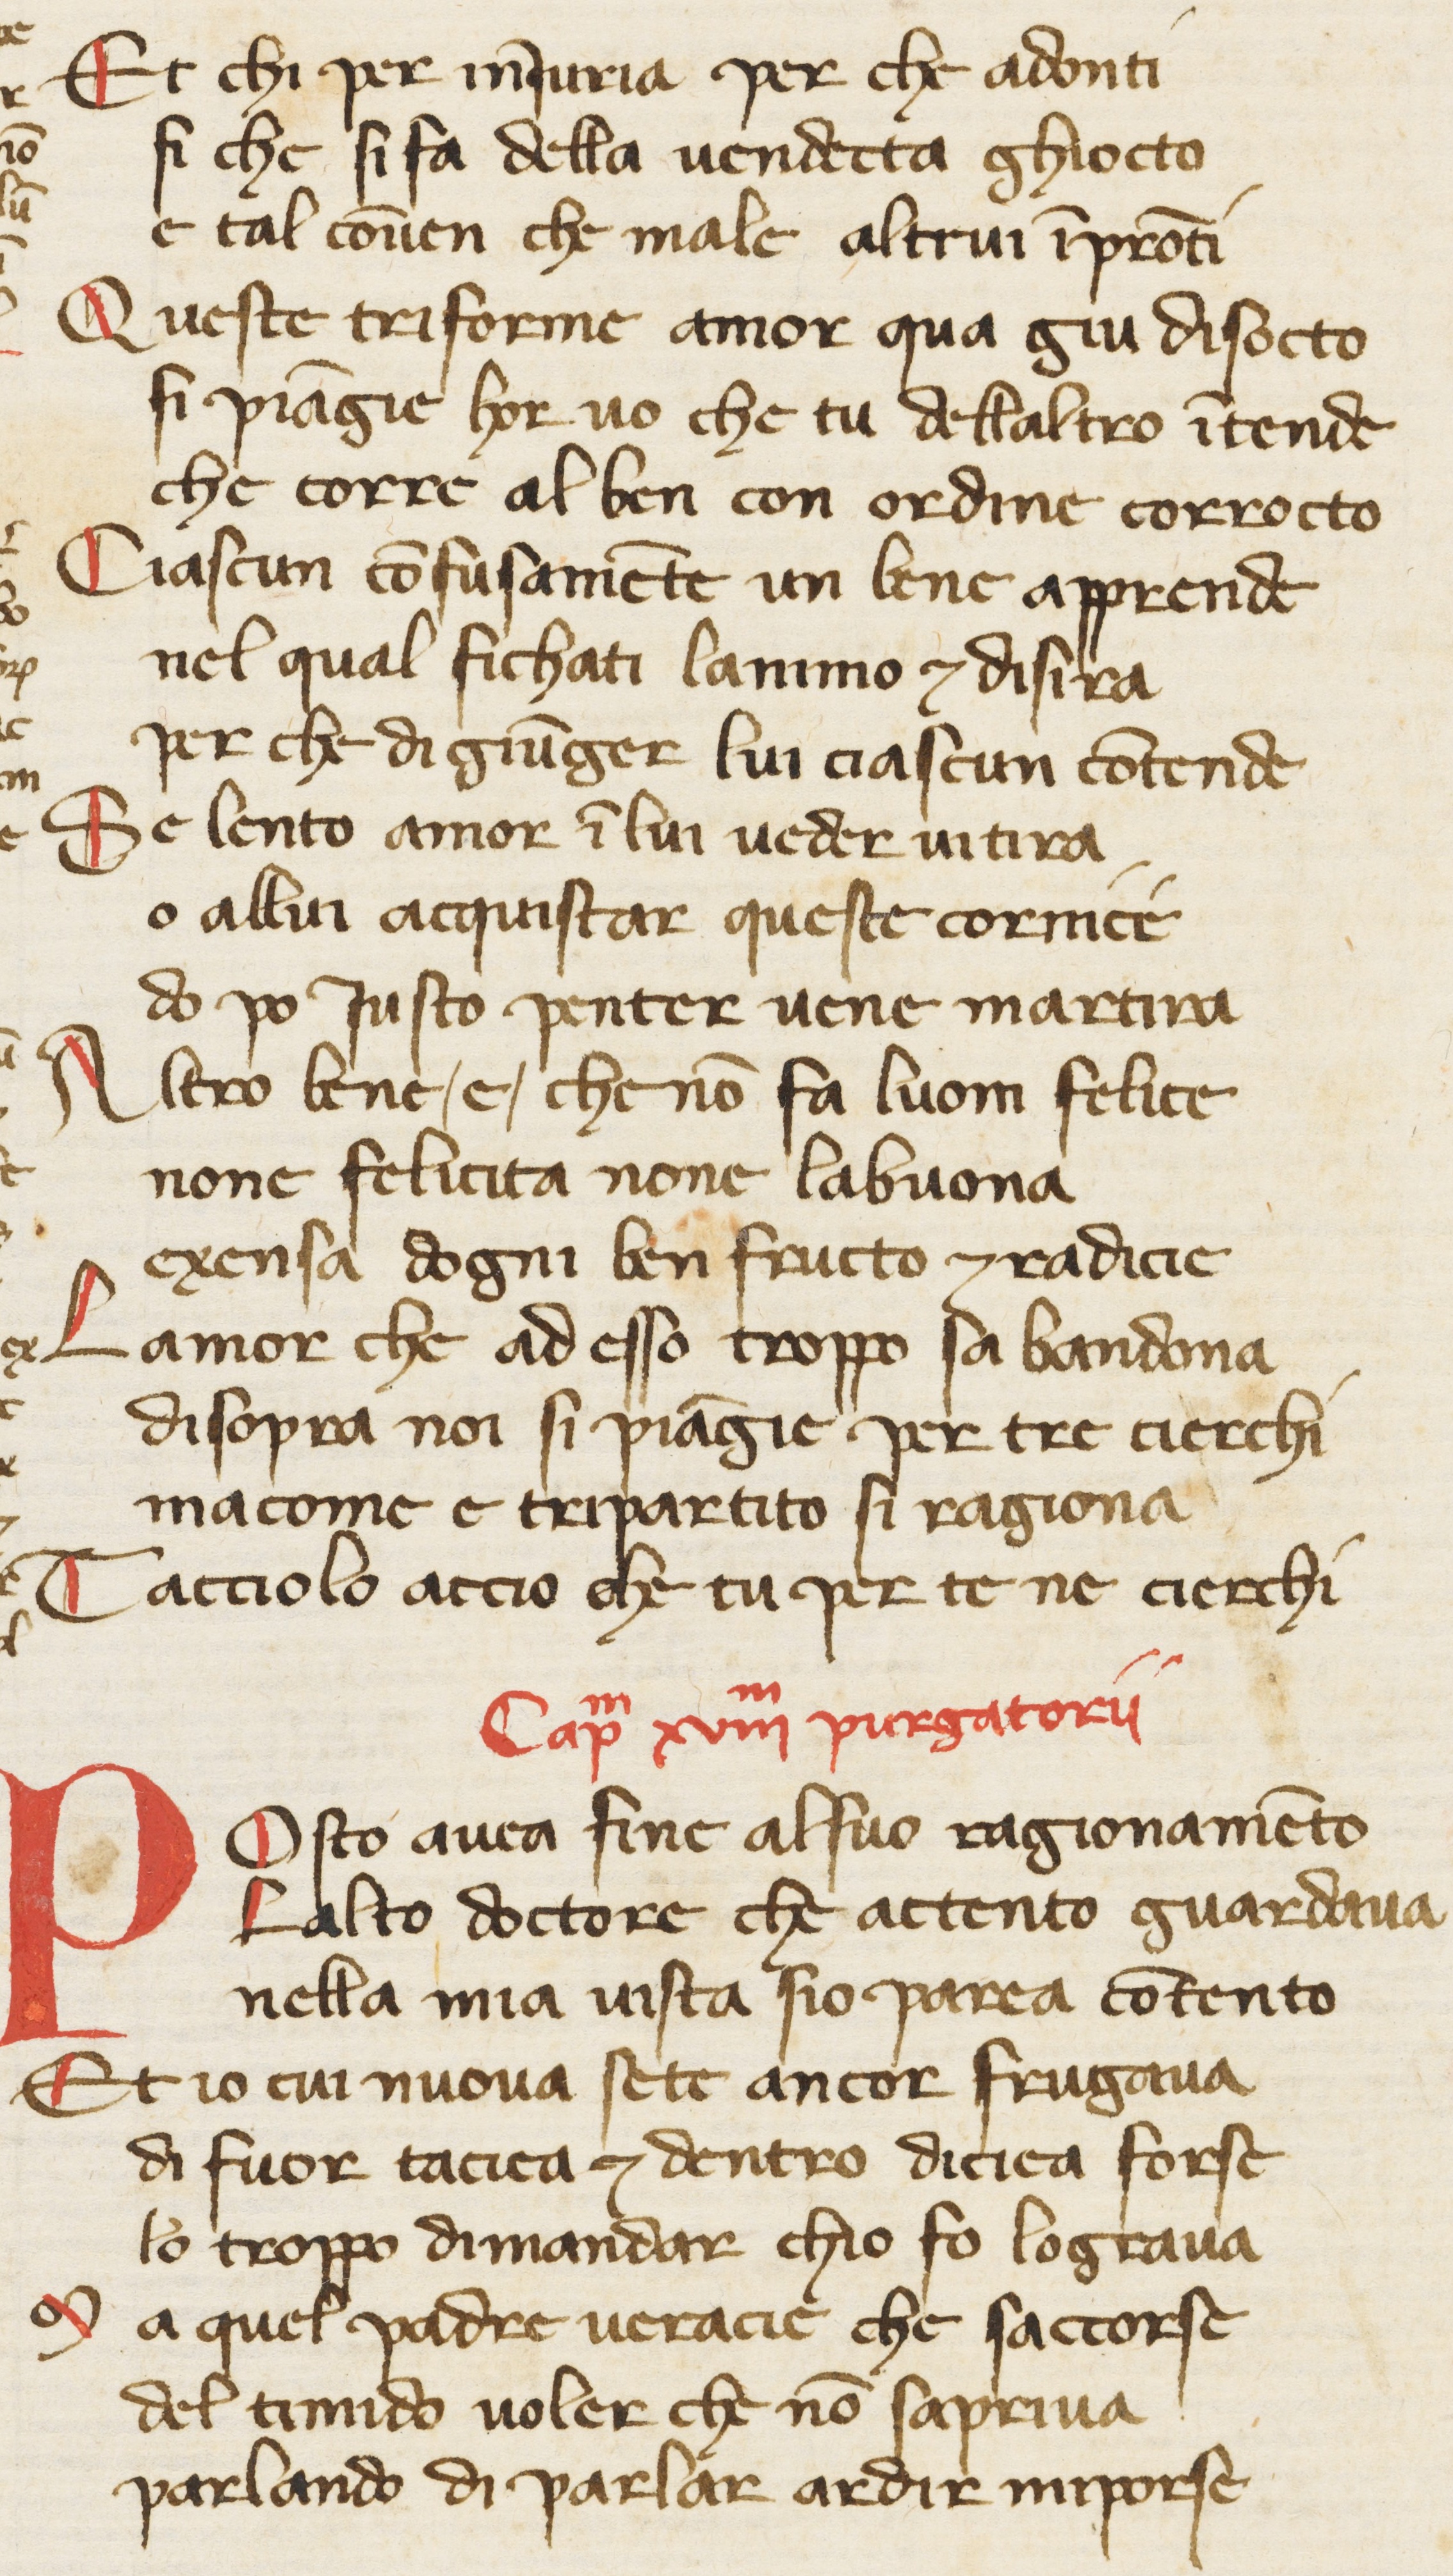 Et chi per in̄iuria per che adonti
si che si fa della uendecta ghiocto
e tal cōuen che male altrui īprōti
Queste triforme amor qua giu disocto
si piāgie hor uo che tu dellaltro ītende
che corre al ben con ordine corrocto
Ciascun cōfusamēte un bene apprende
nel qual fichati lanimo ⁊ disira
per che di giūger lui ciascun cōtende
Se lento amor ī lui ueder ui tira
o allui acquistar queste cornice
do po Iusto penter uene martira
Altro bene /e/ che nō fa luom felice
none felicita none labuona
exensa dogni ben fructo ⁊ radicie
Lamor che ad esso troppo sa bandona
disopra noi si piāgie per tre cierchi
macome e tripartito si ragiona
Tacciolo accio che tu per te ne cierchi
Capᵐ xviiiᵐ purgatorii
POsto auea fine al suo ragionamēto
Lalto doctore che actento guardaua
nella mia uista sio parea cōtento
Et io cui nuoua sete ancor frugaua
di fuor taciea ⁊ dentro diciea forse
lo troppo dimandar chio fo lograua
Ma quel padre ueracie che saccorse
del timido uoler che nō sapriua
parlando di parlar ardir miporse